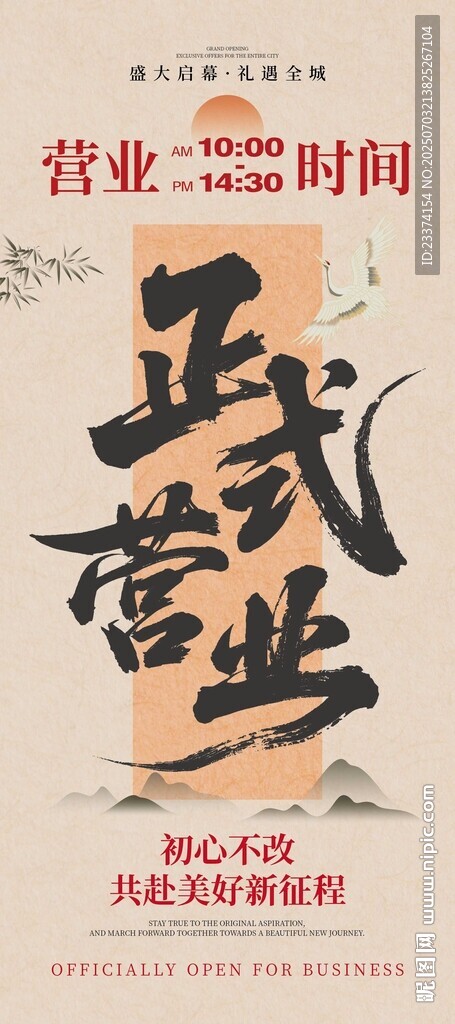 GRAND OPENING
EXCLUSIVE OFFERS FOR THE ENTIRE CITY
盛大启幕·礼遇全城
营业 AM 10:00 - PM 14:30 时间
正式
营业
初心不改
共赴美好新征程
STAY TRUE TO THE ORIGINAL ASPIRATION,
AND MARCH FORWARD TOGETHER TOWARDS A BEAUTIFUL NEW JOURNEY.
OFFICIALLY OPEN FOR BUSINESS
ID:23374154 NO:20250703213825267104
昵图网 www.nipic.com